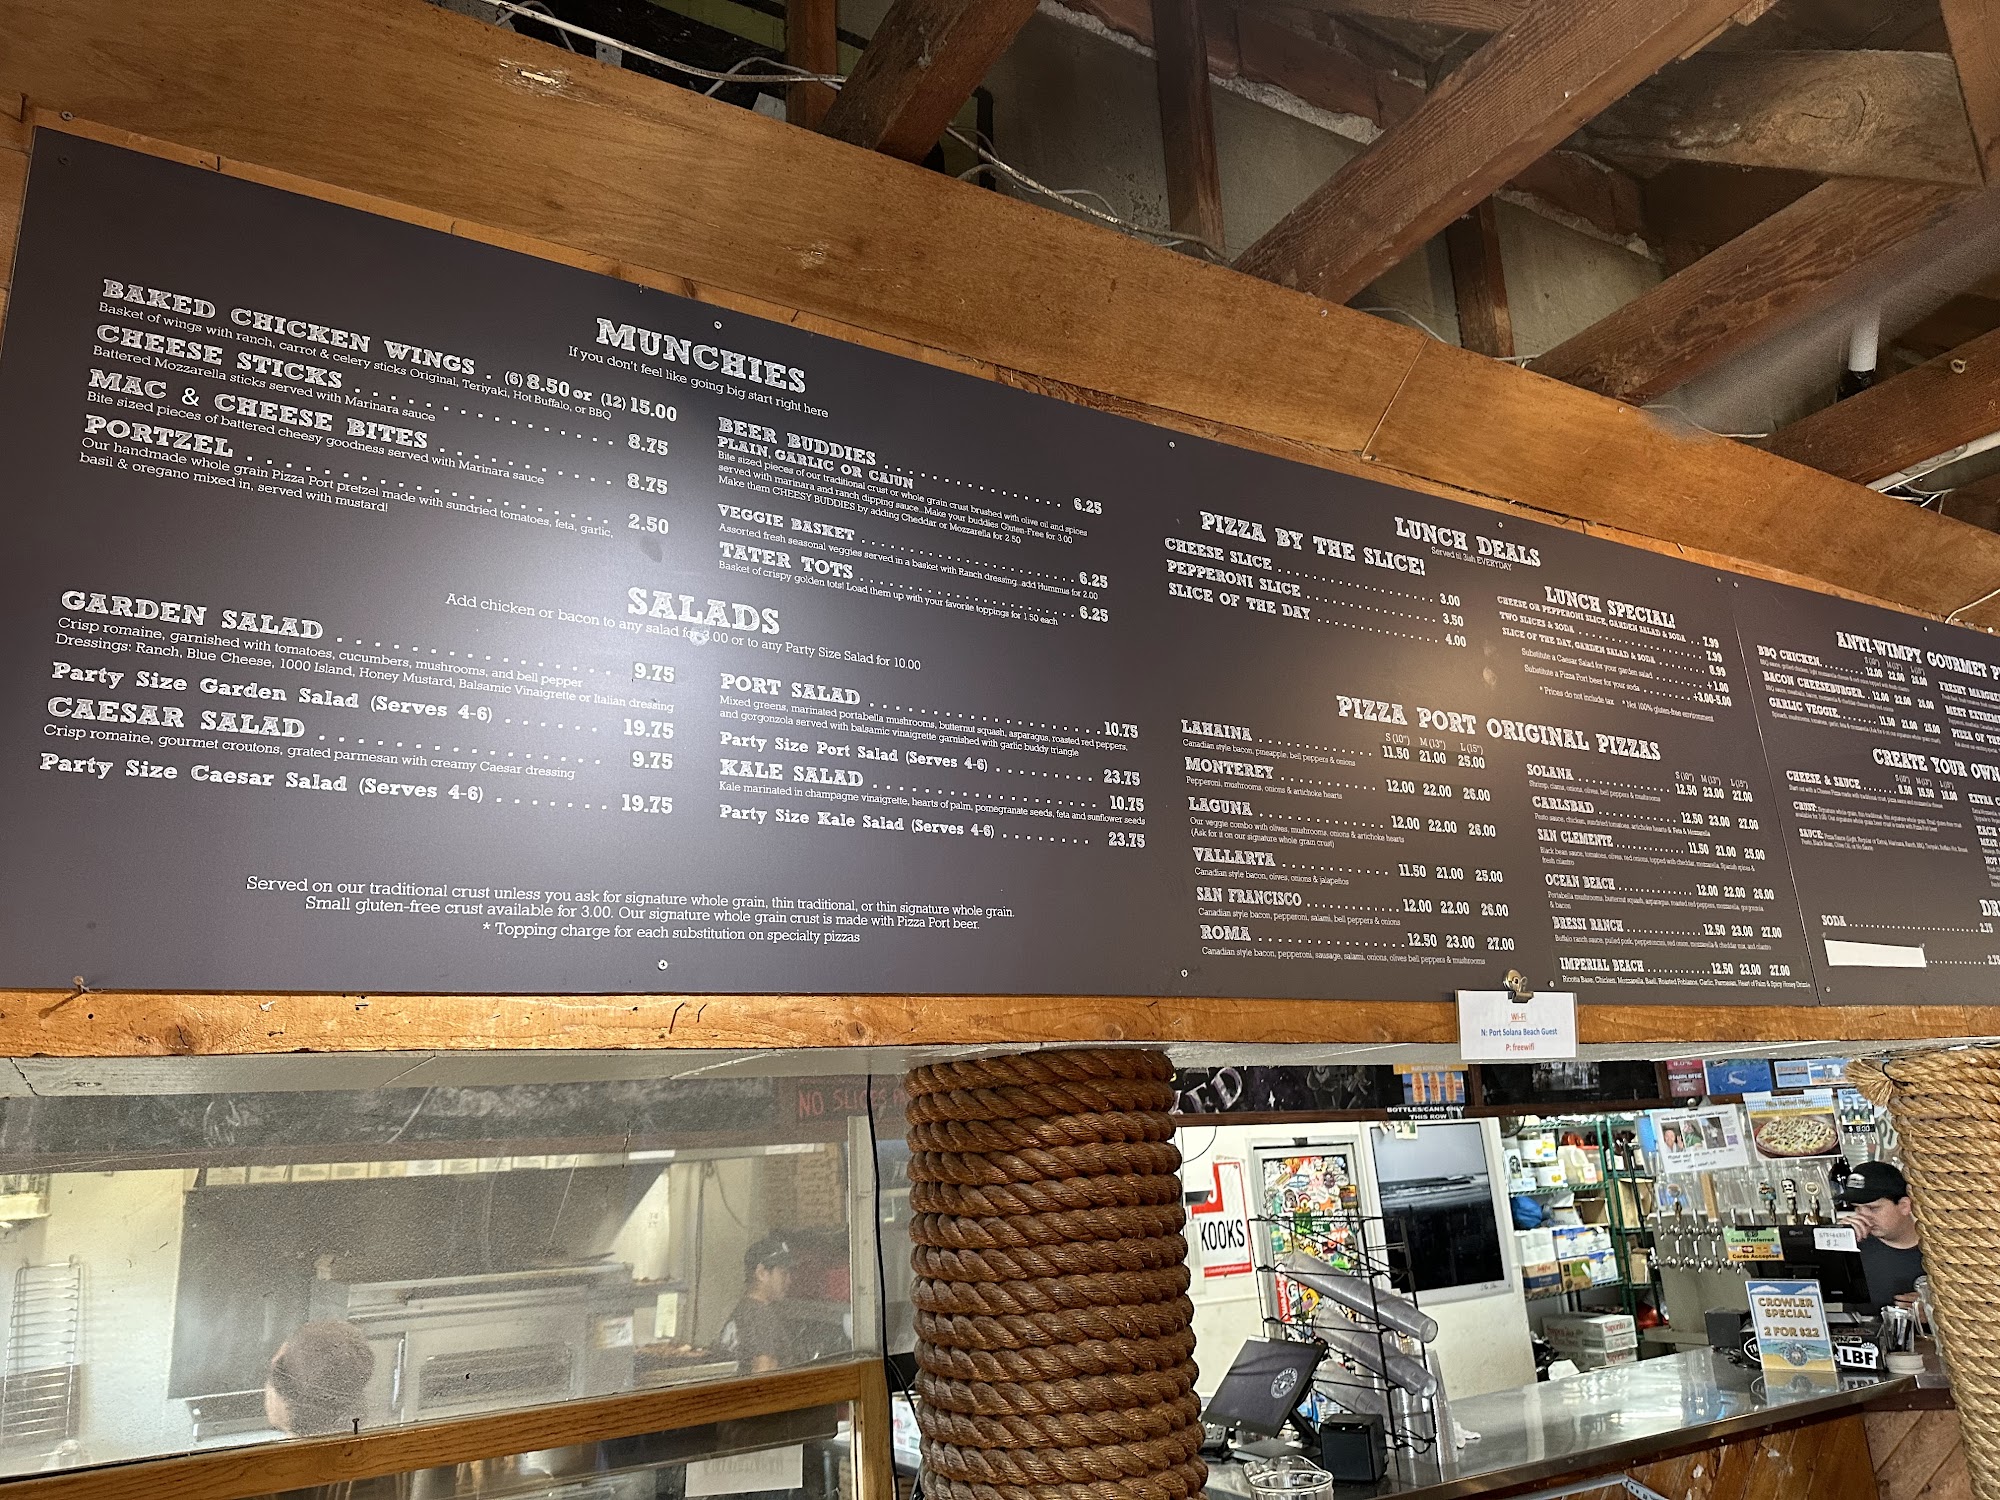 MUNCHIES
If you don't feel like going big start right here
BAKED CHICKEN WINGS . (6) 8.50 or (12) 15.00
Basket of wings with ranch, carrot & celery sticks Original, Teriyaki, Hot Buffalo, or BBQ
CHEESE STICKS . . . . . . . . . . . . . . 8.75
Battered Mozzarella sticks served with Marinara sauce
MAC & CHEESE BITES . . . . . . . . . . 8.75
Bite sized pieces of battered cheesy goodness served with Marinara sauce
PORTZEL . . . . . . . . . . . . . . . . . . . 2.50
Our handmade whole grain Pizza Port pretzel made with sundried tomatoes, feta, garlic,
basil & oregano mixed in, served with mustard!
BEER BUDDIES . . . . . . . . . . . . . . 6.25
PLAIN, GARLIC OR CAJUN
Bite sized pieces of our traditional crust or whole grain crust brushed with olive oil and spices
served with marinara and ranch dipping sauce...Make your buddies Gluten-Free for 3.00
Make them CHEESY BUDDIES by adding Cheddar or Mozzarella for 2.50
VEGGIE BASKET . . . . . . . . . . . . . . . . . 6.25
Assorted fresh seasonal veggies served in a basket with Ranch dressing...add Hummus for 2.00
TATER TOTS . . . . . . . . . . . . . . . . . 6.25
Basket of crispy golden tots! Load them up with your favorite toppings for 1.50 each
SALADS
Add chicken or bacon to any salad for 3.00 or to any Party Size Salad for 10.00
GARDEN SALAD . . . . . . . . . . . . . . 9.75
Crisp romaine, garnished with tomatoes, cucumbers, mushrooms, and bell pepper
Dressings: Ranch, Blue Cheese, 1000 Island, Honey Mustard, Balsamic Vinaigrette or Italian dressing
Party Size Garden Salad (Serves 4-6) . . . . . . 19.75
CAESAR SALAD . . . . . . . . . . . . . . . 9.75
Crisp romaine, gourmet croutons, grated parmesan with creamy Caesar dressing
Party Size Caesar Salad (Serves 4-6) . . . . . . . 19.75
PORT SALAD . . . . . . . . . . . . . . . . . 10.75
Mixed greens, marinated portabella mushrooms, butternut squash, asparagus, roasted red peppers,
and gorgonzola served with balsamic vinaigrette garnished with garlic buddy triangle
Party Size Port Salad (Serves 4-6) . . . . . . . . . 23.75
KALE SALAD . . . . . . . . . . . . . . . . . 10.75
Kale marinated in champagne vinaigrette, hearts of palm, pomegranate seeds, feta and sunflower seeds
Party Size Kale Salad (Serves 4-6) . . . . . . . . 23.75
Served on our traditional crust unless you ask for signature whole grain, thin traditional, or thin signature whole grain.
Small gluten-free crust available for 3.00. Our signature whole grain crust is made with Pizza Port beer.
* Topping charge for each substitution on specialty pizzas
LUNCH DEALS
Served til 3ish EVERYDAY
PIZZA BY THE SLICE!
CHEESE SLICE . . . . . . . . . . . . . . . 3.00
PEPPERONI SLICE . . . . . . . . . . . . 3.50
SLICE OF THE DAY . . . . . . . . . . . 4.00
LUNCH SPECIAL!
CHEESE OR PEPPERONI SLICE, GARDEN SALAD & SODA . . 7.99
TWO SLICES & SODA . . . . . . . . . . . . . 7.99
SLICE OF THE DAY, GARDEN SALAD & SODA . . . . . 8.99
Substitute a Caesar Salad for your garden salad . . . . . . . + 1.00
Substitute a Pizza Port beer for your soda . . . . . . . +3.00-5.00
* Prices do not include tax * Not 100% gluten-free environment
PIZZA PORT ORIGINAL PIZZAS
S (10") M (13") L (15")
LAHAINA . . . . . . . . . . . . . 11.50 21.00 25.00
Canadian style bacon, pineapple, bell peppers & onions
MONTEREY . . . . . . . . . . . . 12.00 22.00 26.00
Pepperoni, mushrooms, onions & artichoke hearts
LAGUNA . . . . . . . . . . . . . . 12.00 22.00 26.00
Our veggie combo with olives, mushrooms, onions & artichoke hearts
(Ask for it on our signature whole grain crust)
VALLARTA . . . . . . . . . . . . 11.50 21.00 25.00
Canadian style bacon, olives, onions & jalapeños
SAN FRANCISCO . . . . . . . . . 12.00 22.00 26.00
Canadian style bacon, pepperoni, salami, bell peppers & onions
ROMA . . . . . . . . . . . . . . . 12.50 23.00 27.00
Canadian style bacon, pepperoni, sausage, salami, onions, olives bell peppers & mushrooms
S (10") M (13") L (15")
SOLANA . . . . . . . . . . . . . 12.50 23.00 27.00
Shrimp, clams, onions, olives, bell peppers & mushrooms
CARLSBAD . . . . . . . . . . . . 12.50 23.00 27.00
Pesto sauce, chicken, sundried tomatoes, artichoke hearts & Feta & Mozzarella
SAN CLEMENTE . . . . . . . . . 11.50 21.00 25.00
Black bean sauce, tomatoes, olives, red onions, topped with cheddar, mozzarella, Spanish spices &
fresh cilantro
OCEAN BEACH . . . . . . . . . . 12.00 22.00 26.00
Portabella mushrooms, butternut squash, asparagus, roasted red peppers, mozzarella, gorgonzola
& bacon
BRESSI RANCH . . . . . . . . . . 12.50 23.00 27.00
Buffalo ranch sauce, pulled pork, pepperoncini, red onion, mozzarella & cheddar mix, and cilantro
IMPERIAL BEACH . . . . . . . . . 12.50 23.00 27.00
Ricotta Base, Chicken, Mozzarella, Basil, Roasted Poblanos, Garlic, Parmesan, Heart of Palm & Spicy Honey Drizzle
ANTI-WIMPY GOURMET P
S (10") M (13") L (15")
BBQ CHICKEN . . . . . . . 12.00 22.00 26.00
BACON CHEESEBURGER . . 12.00 22.00 26.00
GARLIC VEGGIE . . . . . . . 11.50 21.00 25.00
FRESH MARGHE
MEET EXTREM
PIZZA OF TH
CREATE YOUR OWN
CHEESE & SAUCE . . . . . . 8.50 16.50 18.00
CRUST:
SAUCE:
EXTRA C
EACH
SODA . . . . . . . . 2.75
Wi-Fi
N: Port Solana Beach Guest
P: freewifi
NO SLICES
BOTTLES/CANS ONLY
THIS ROW
KOOKS
Cash Preferred
Cards Accepted
$1
$ 8.00
CROWLER
SPECIAL
2 FOR $22
LBF